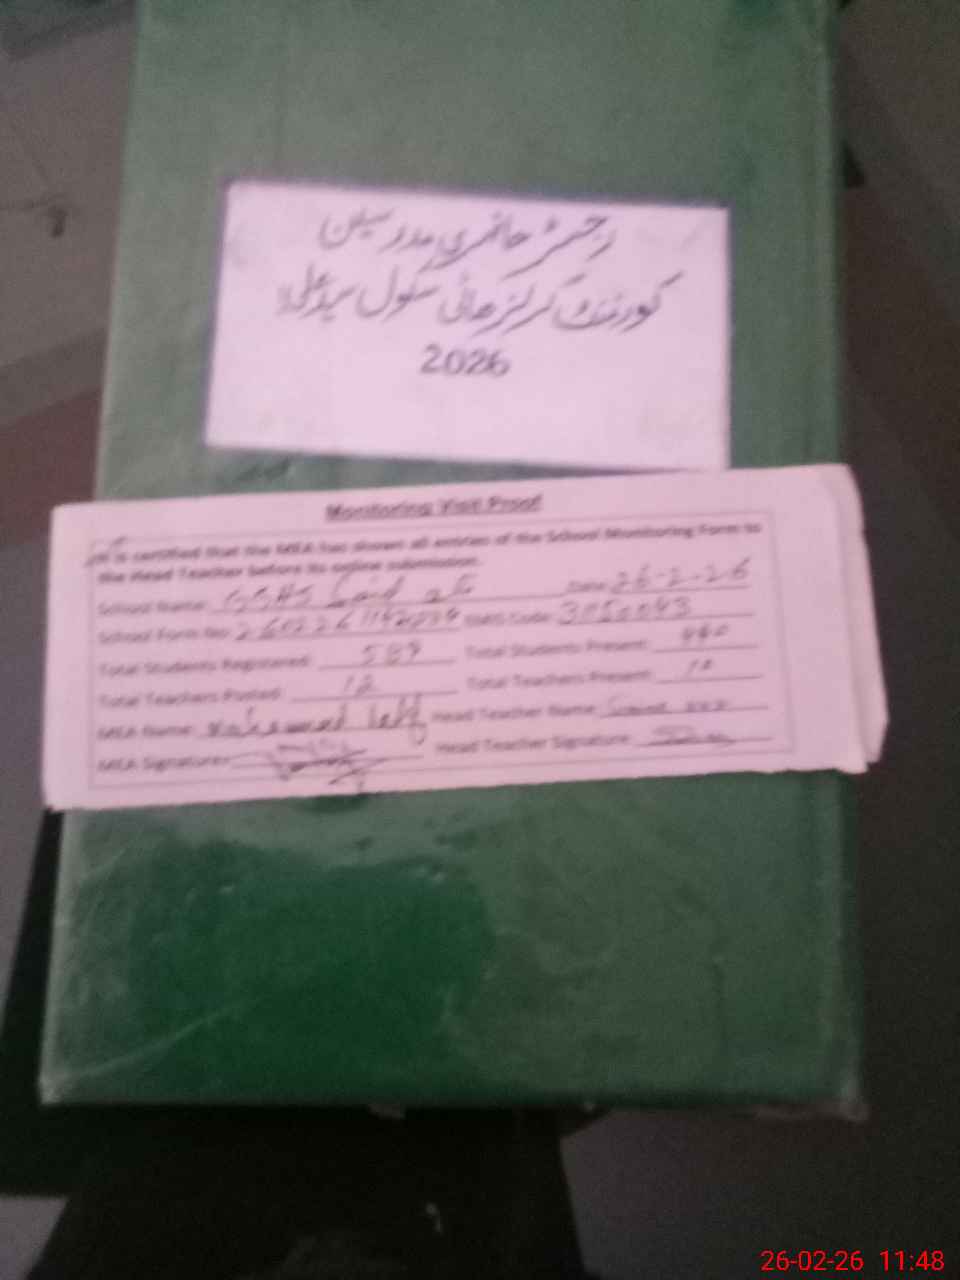 رجسٹر حاضری مدرسین
گورنمنٹ گرلز ہائی سکول سید علی
2026
Monitoring Visit Proof
It is certified that the MEA has shown all entries of the School Monitoring Form to
the Head Teacher before its online submission.
School Name: GGHS Said Date: 26-2-26
School Form No: EMIS Code:
Total Students Registered: 589 Total Students Present: 440
Total Teachers Posted: 12 Total Teachers Present: 10
MEA Name: Head Teacher Name:
MEA Signature: Head Teacher Signature:
26-02-26 11:48